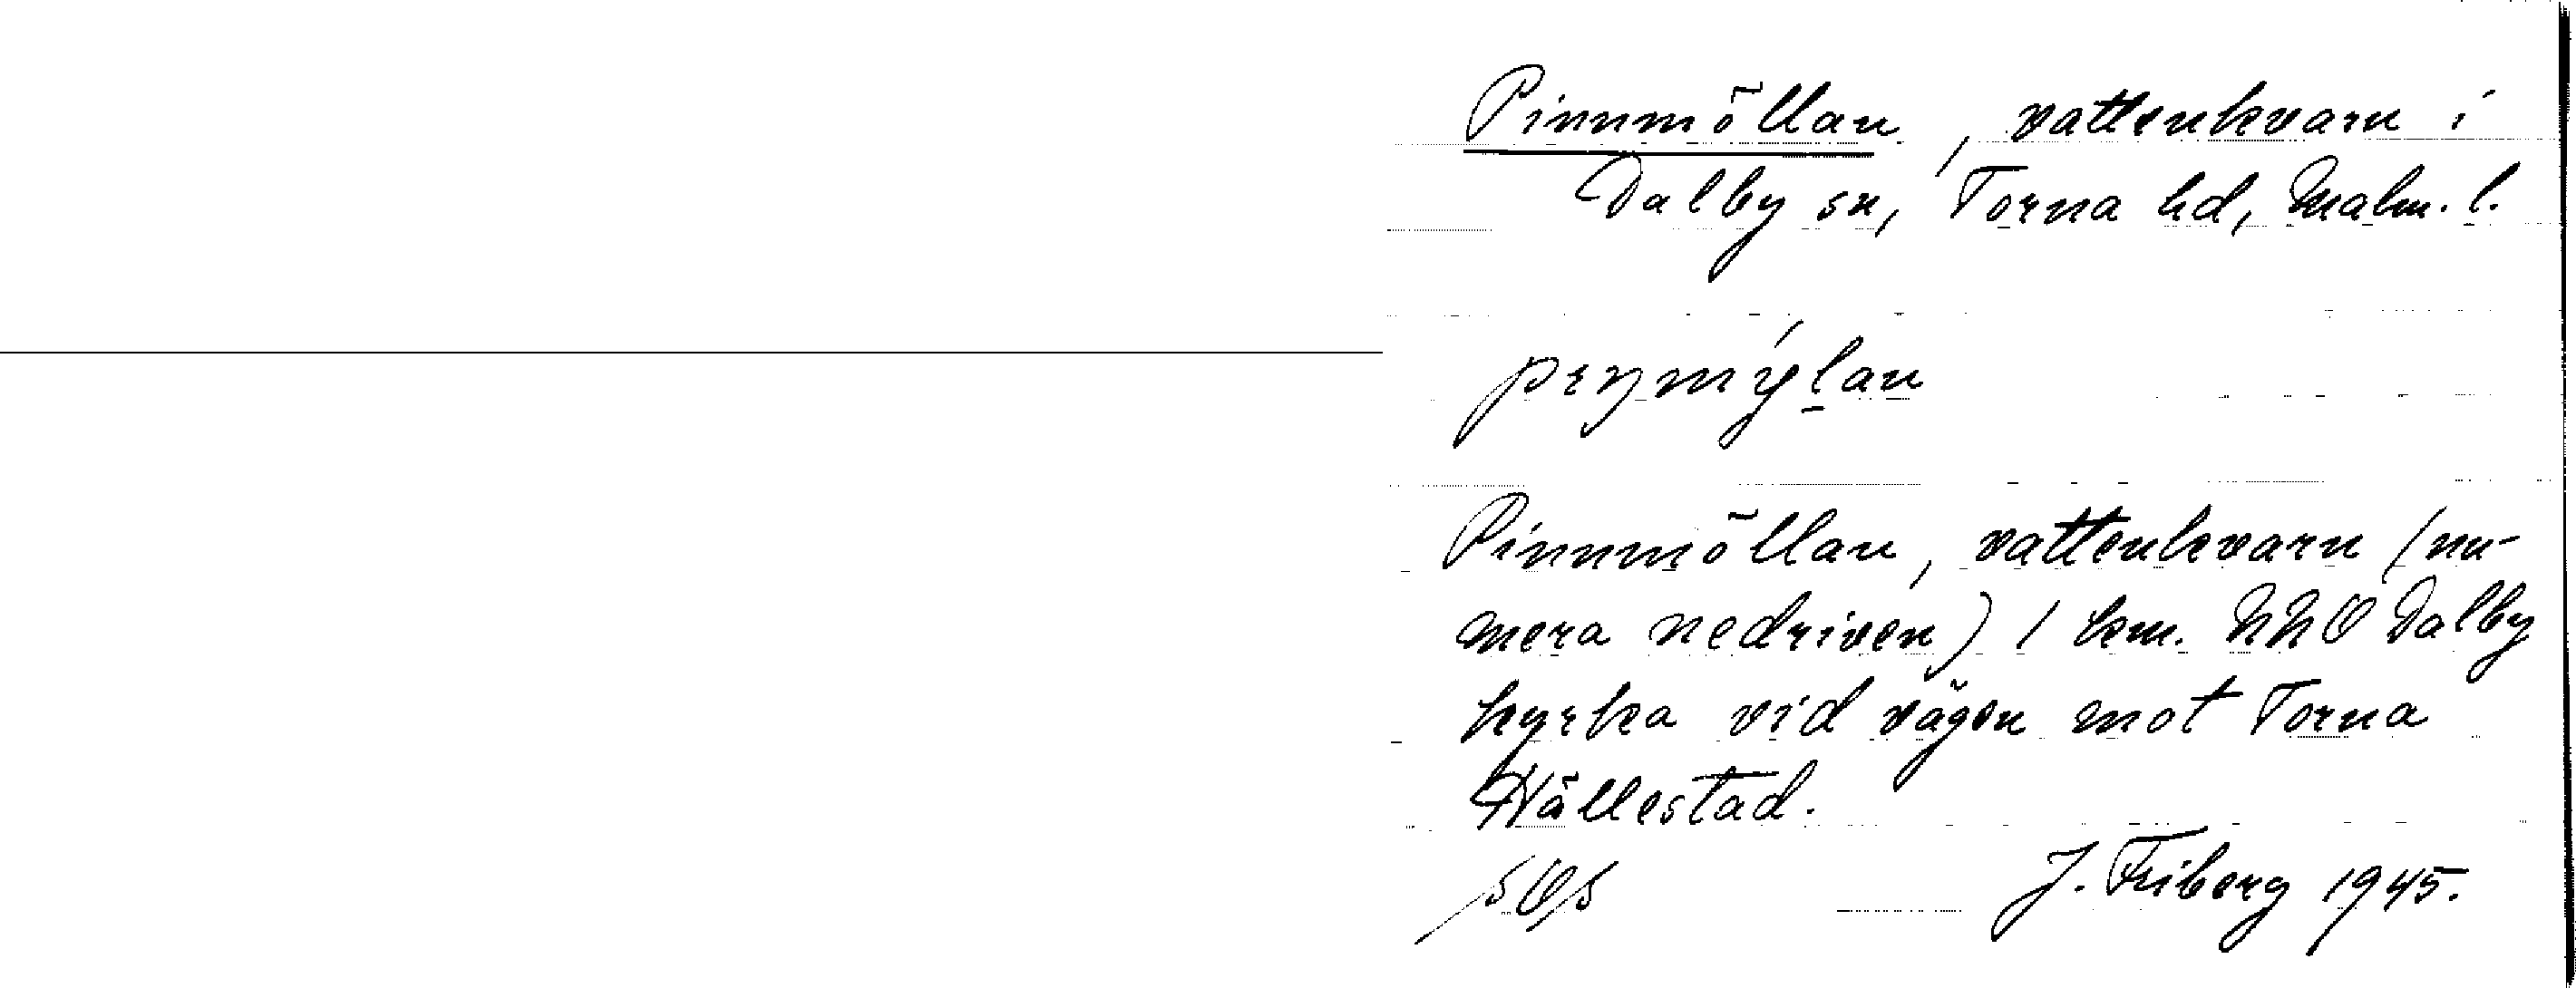 Pinnmöllan, vattenkvarn i
Dalby sn, Torna hd, Malm. l.
Pinnmöllan, vattenkvarn (nu-
mera nedriven) 1 km. NNO Dalby
kyrka vid vägen mot Torna
Hällestad.
J. Friberg 1945.